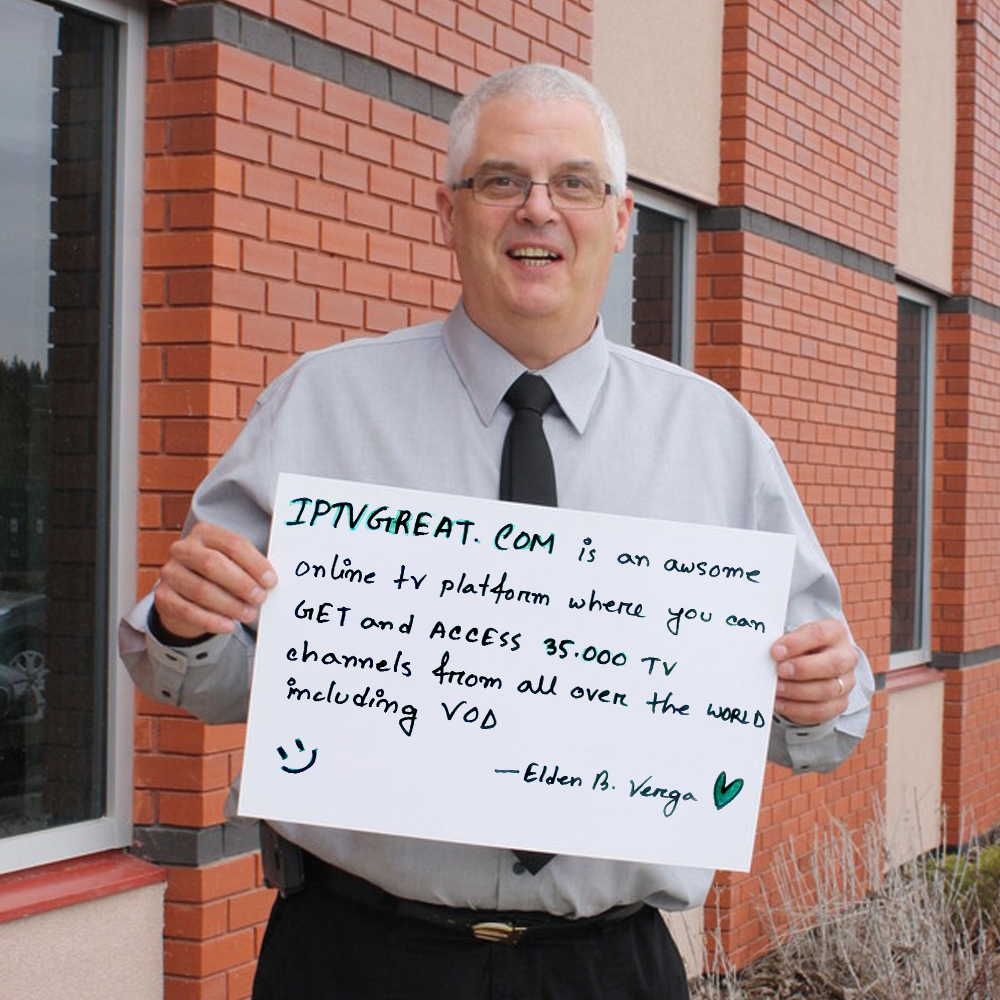 IPTVGREAT.COM is an awsome
online tv platform where you can
GET and ACCESS 35.000 TV
channels from all over the WORLD
including VOD
—Elden B. Verga